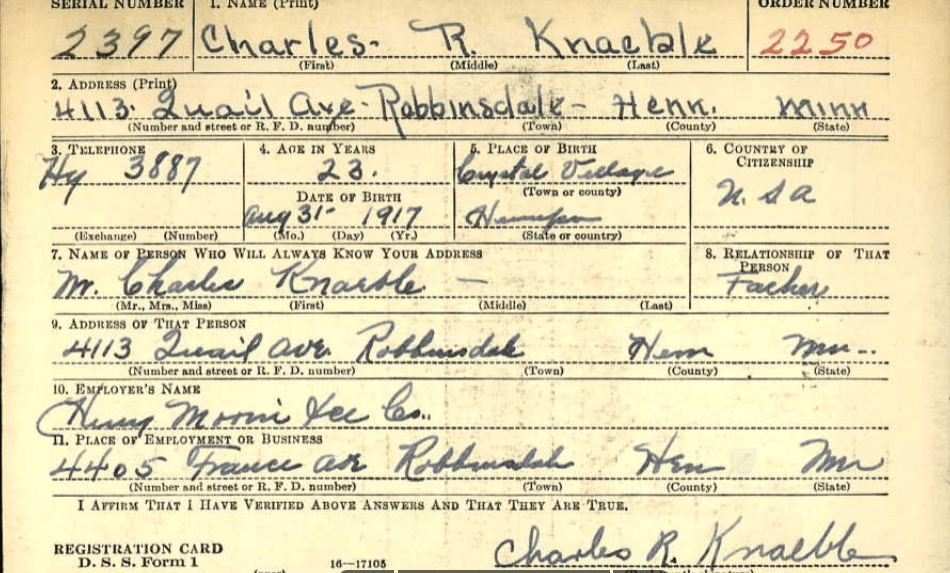 SERIAL NUMBER 1. NAME (Print) ORDER NUMBER
2397 Charles- R. Knaeble 2250
(First) (Middle) (Last)
2. ADDRESS (Print)
4113. Quail Ave-Robbinsdale- Henn. Minn
(Number and street or R. F. D. number) (Town) (County) (State)
3. TELEPHONE 4. AGE IN YEARS 5. PLACE OF BIRTH 6. COUNTRY OF CITIZENSHIP
Hy 3887 23. Crystal Village U.S.A
DATE OF BIRTH (Town or county)
Aug 31- 1917
(Exchange) (Number) (Mo.) (Day) (Yr.) (State or country)
7. NAME OF PERSON WHO WILL ALWAYS KNOW YOUR ADDRESS 8. RELATIONSHIP OF THAT PERSON
Mr. Charles Knaeble — Father
(Mr., Mrs., Miss) (First) (Middle) (Last)
9. ADDRESS OF THAT PERSON
4113 Quail Ave. Robbinsdale Henn Mn--
(Number and street or R. F. D. number) (Town) (County) (State)
10. EMPLOYER'S NAME
Henry Ice Co..
11. PLACE OF EMPLOYMENT OR BUSINESS
4405 France Ave Robbinsdale Hen Mn
(Number and street or R. F. D. number) (Town) (County) (State)
I AFFIRM THAT I HAVE VERIFIED ABOVE ANSWERS AND THAT THEY ARE TRUE.
REGISTRATION CARD
D. S. S. Form 1 16—17105 Charles R. Knaebble